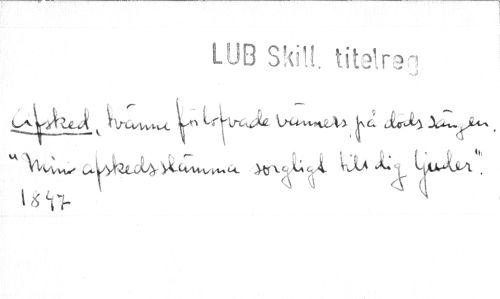 LUB Skill. titelreg
Afsked, tvänne förlofvade vänners, på döds sängen.
"Min afskedsstämma sorgligt till dig ljuder".
1847